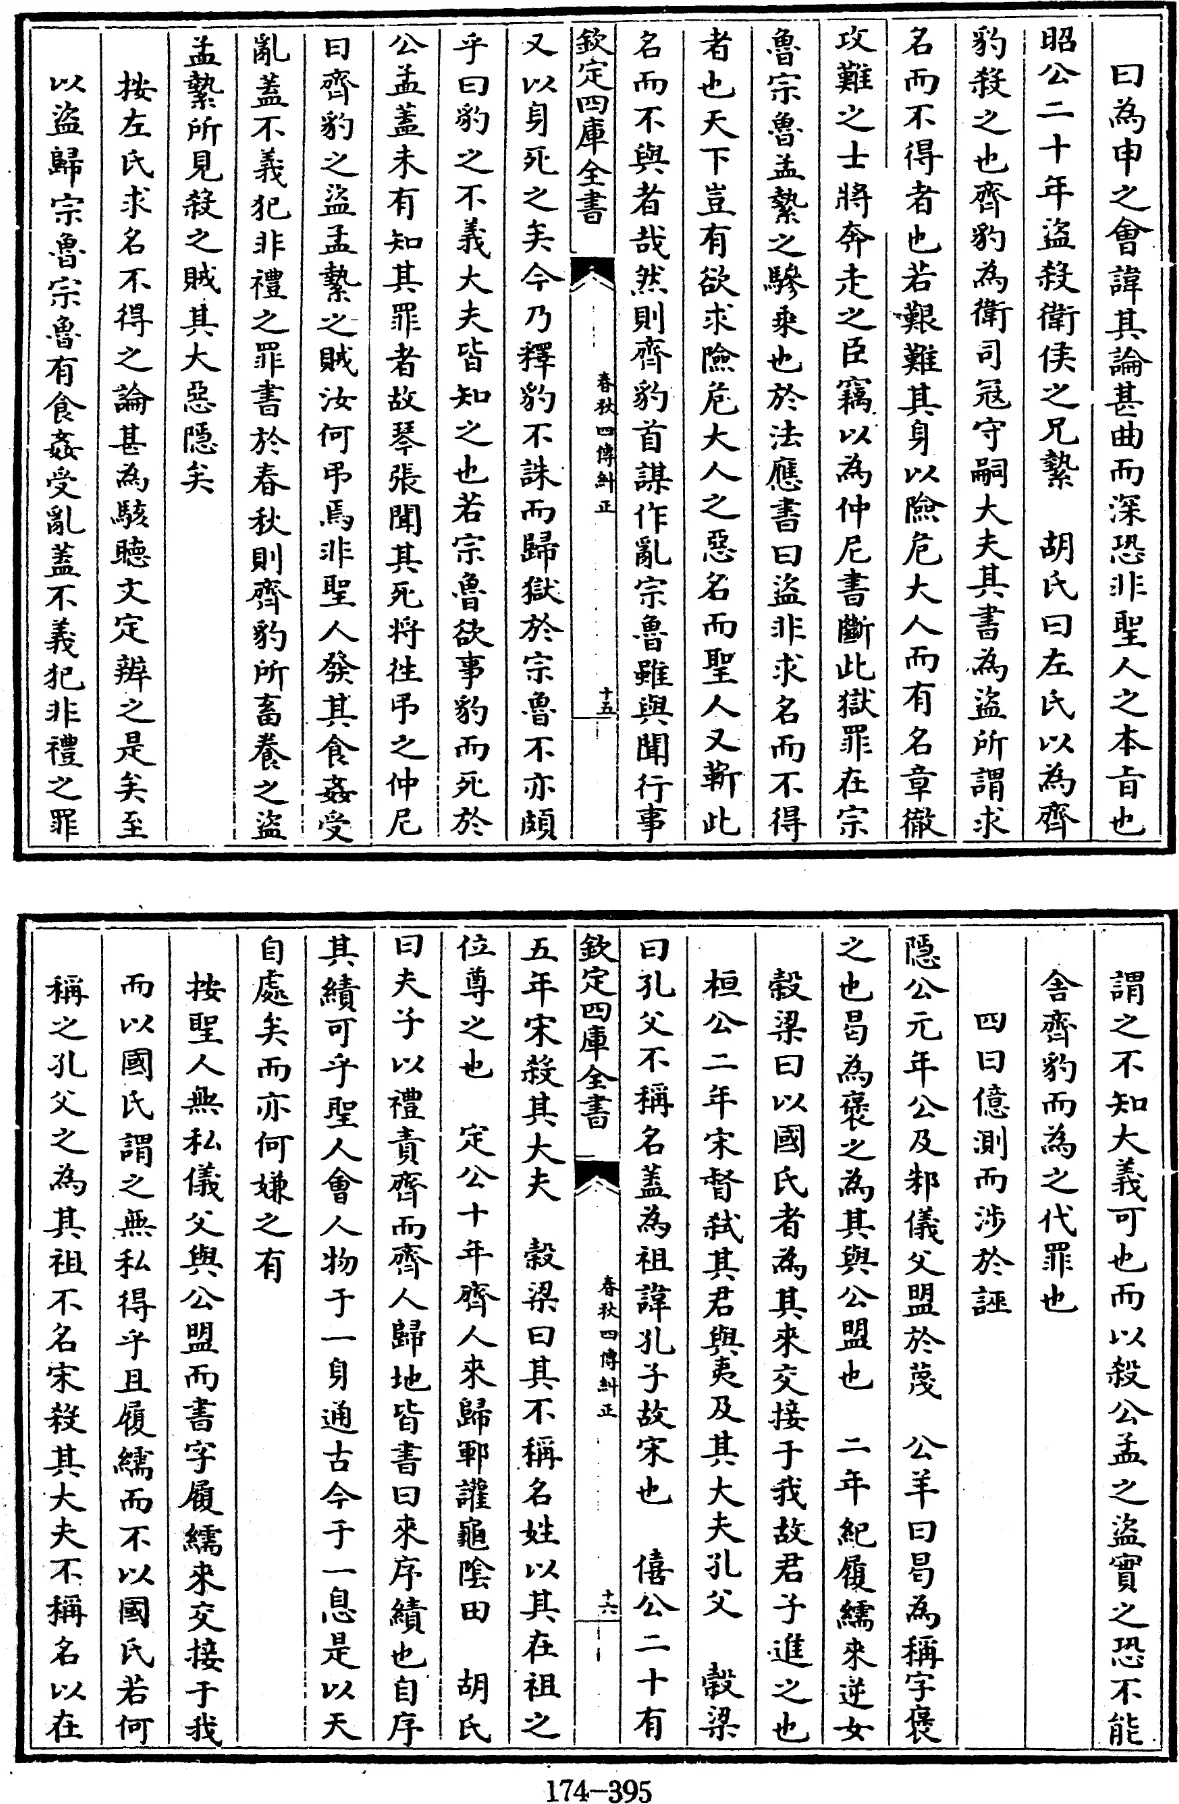 曰為申之會諱其論甚曲而深恐非聖人之本旨也
昭公二十年盜殺衛侯之兄縶　胡氏曰左氏以為齊
豹殺之也齊豹為衛司冦守嗣大夫其書為盜所謂求
名而不得者也若艱難其身以險危大人而有名章徹
攻難之士將奔走之臣竊以為仲尼書斷此獄罪在宗
魯宗魯孟縶之驂乘也於法應書曰盜非求名而不得
者也天下豈有欲求險危大人之惡名而聖人又蘄此
名而不與者哉然則齊豹首謀作亂宗魯雖與聞行事
欽定四庫全書
春秋四傳糾正
十五
又以身死之矣今乃釋豹不誅而歸獄於宗魯不亦頗
乎曰豹之不義大夫皆知之也若宗魯欲事豹而死於
公孟蓋未有知其罪者故琴張聞其死將往弔之仲尼
曰齊豹之盜孟縶之賊汝何弔焉非聖人發其食姦受
亂蓋不義犯非禮之罪書於春秋則齊豹所畜養之盜
孟縶所見殺之賊其大惡隱矣
按左氏求名不得之論甚為駭聽文定辨之是矣至
以盜歸宗魯宗魯有食姦受亂蓋不義犯非禮之罪
謂之不知大義可也而以殺公孟之盜實之恐不能
舍齊豹而為之代罪也
四曰億測而涉於誣
隱公元年公及邾儀父盟於蔑　公羊曰曷為稱字褒
之也曷為褒之為其與公盟也　二年紀履繻來逆女
穀梁曰以國氏者為其來交接于我故君子進之也
桓公二年宋督弑其君與夷及其大夫孔父　穀梁
曰孔父不稱名蓋為祖諱孔子故宋也　僖公二十有
欽定四庫全書
春秋四傳糾正
十六
五年宋殺其大夫　穀梁曰其不稱名姓以其在祖之
位尊之也　定公十年齊人來歸鄆讙龜陰田　胡氏
曰夫子以禮責齊而齊人歸地皆書曰來序績也自序
其績可乎聖人會人物于一身通古今于一息是以天
自處矣而亦何嫌之有
按聖人無私儀父與公盟而書字履繻來交接于我
而以國氏謂之無私得乎且履繻而不以國氏若何
稱之孔父之為其祖不名宋殺其大夫不稱名以在
174-395